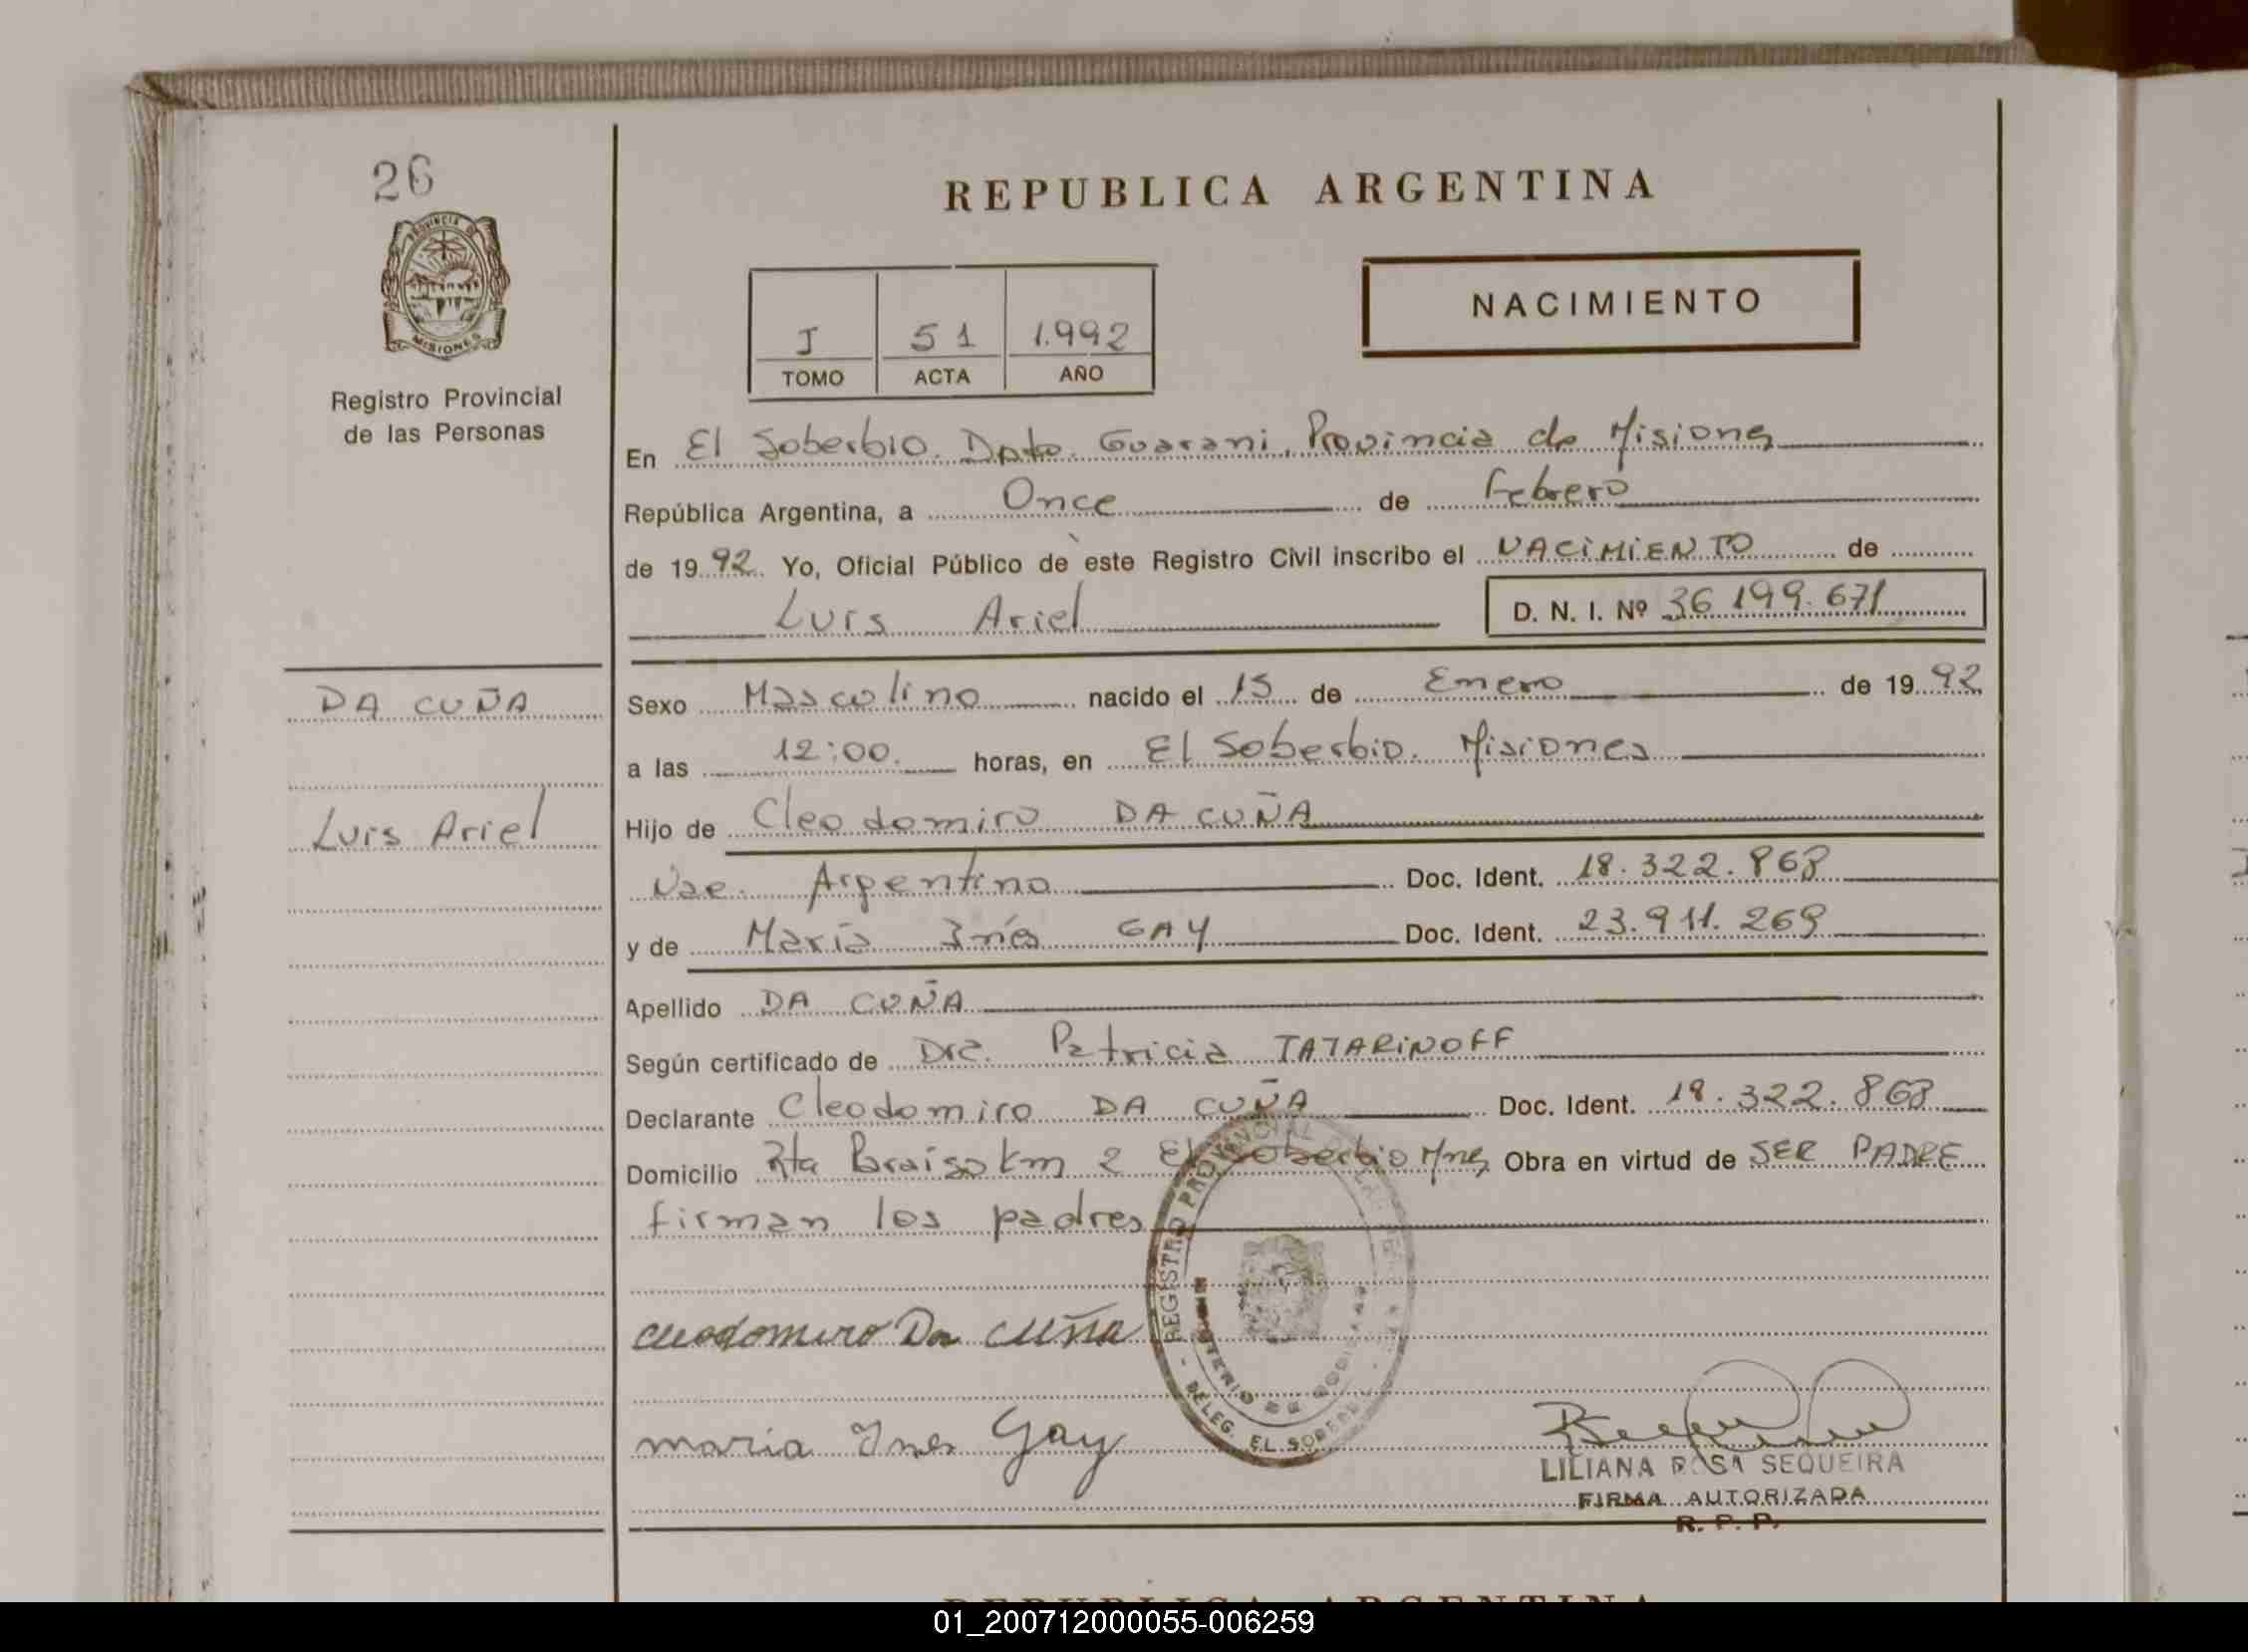 26
PROVINCIA DE
MISIONES
Registro Provincial
de las Personas
DA CUÑA
Luis Ariel
REPUBLICA ARGENTINA
NACIMIENTO
I 51 1.992
TOMO ACTA AÑO
En El Soberbio. Dpto. Guarani, Provincia de Misiones
República Argentina, a Once de Febrero
de 1992 Yo, Oficial Público de este Registro Civil inscribo el NACIMIENTO de
Luis Ariel D. N. I. Nº 36 199.671
Sexo Masculino nacido el 15 de Enero de 1992
a las 12:00. horas, en El Soberbio. Misiones
Hijo de Cleodomiro DA CUÑA
Nac. Argentino Doc. Ident. 18.322.868
y de María Inés GAY Doc. Ident. 23.911.269
Apellido DA CUÑA
Según certificado de Dra. Patricia TATARINOFF
Declarante Cleodomiro DA CUÑA Doc. Ident. 18.322.868
Domicilio Rta Paraiso Km 2 El Soberbio Mnes Obra en virtud de SER PADRE
firman los padres
REGISTRO PROVINCIAL DE LAS
DELEG. EL SOBERBIO
Cleodomiro Da Cuña
maria Ines Gay
LILIANA ROSA SEQUEIRA
FIRMA AUTORIZADA
R. P. P.
REPUBLICA ARGENTINA
01_200712000055-006259